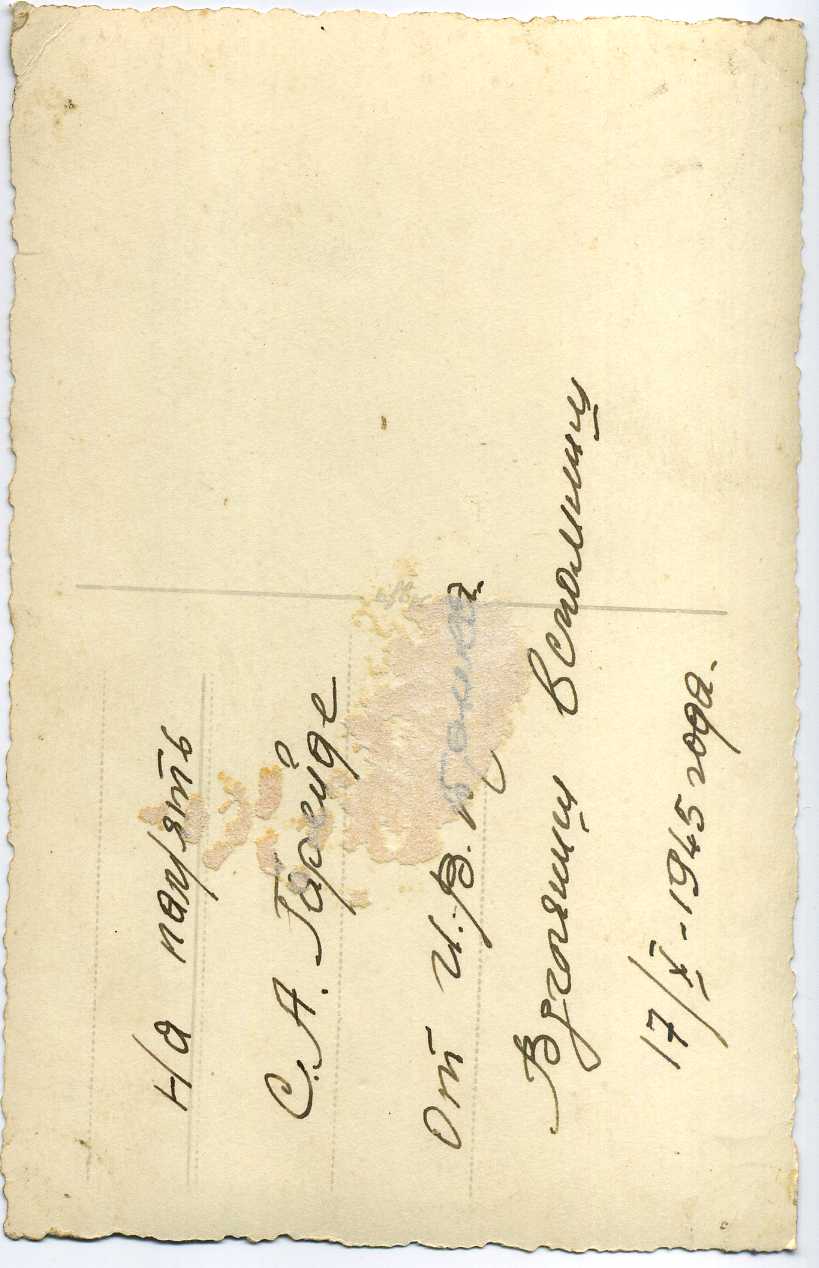 На память
С. А. Гарейде
От И. В.
Взглянишь вспомнишь
17/XI-1945 года.